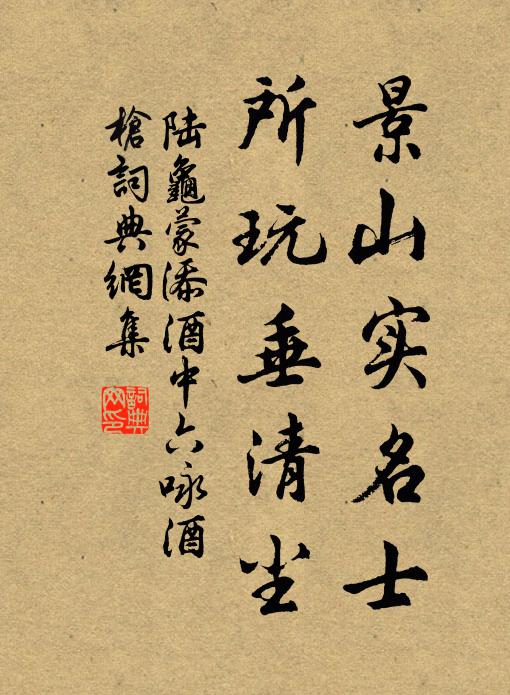 景山实名士
所玩垂清尘
陆龜蒙添酒中六咏酒
槍詞典網集
詞典
网印